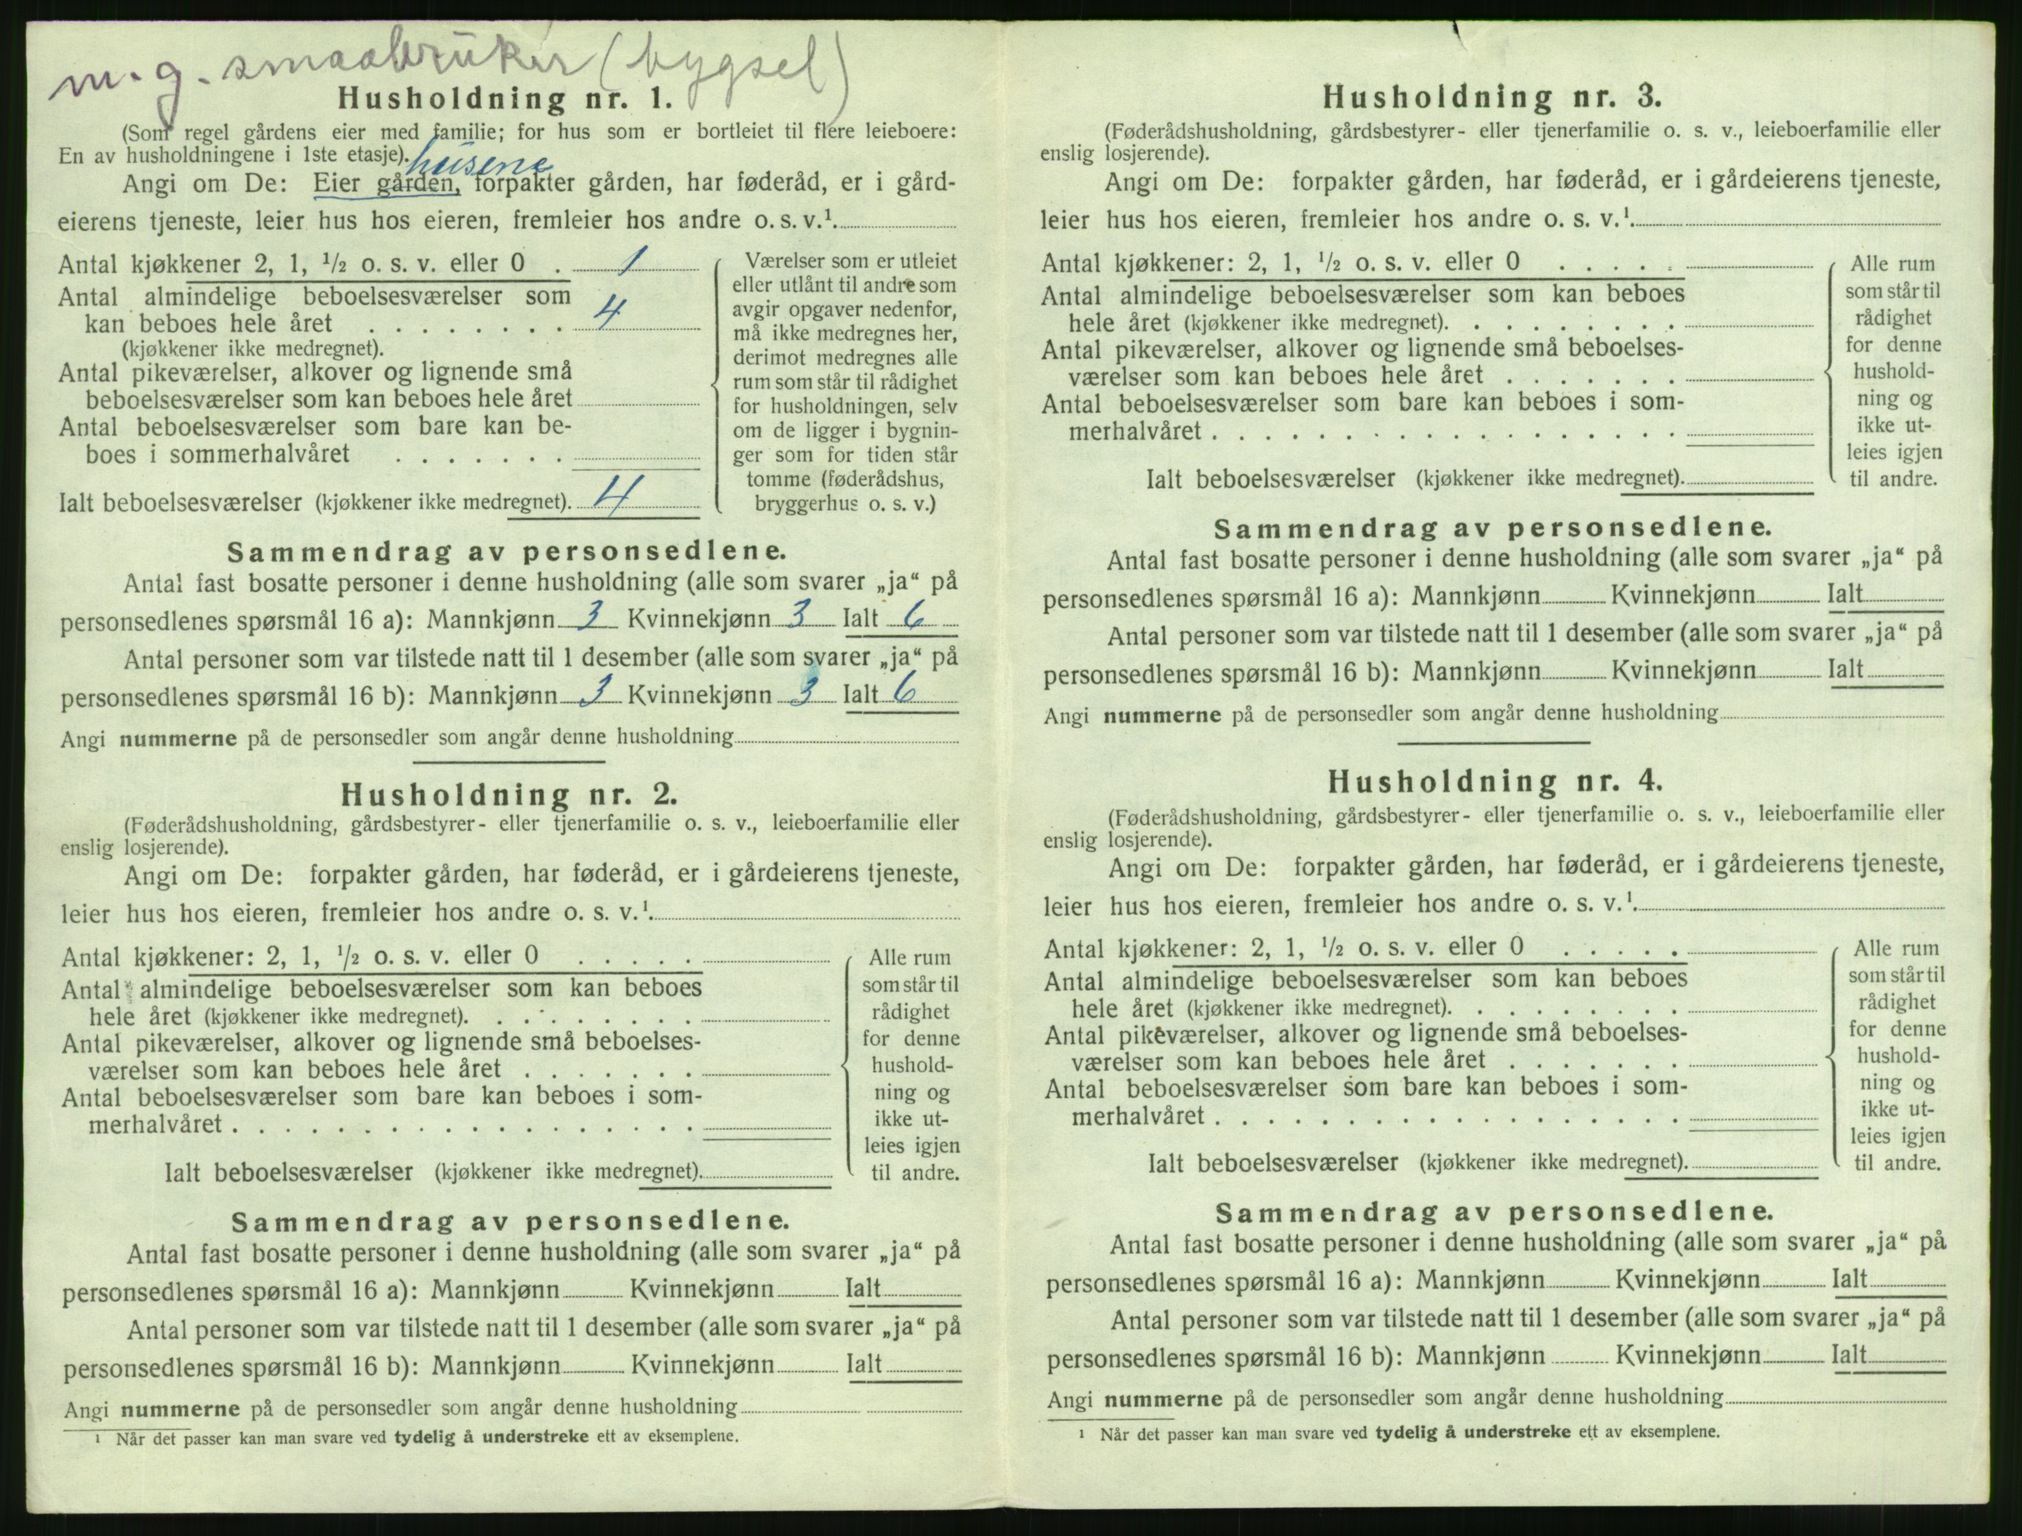 m. g. smaabruker (bygsel)
Husholdning nr. 1.
(Som regel gårdens eier med familie; for hus som er bortleiet til flere leieboere:
En av husholdningene i 1ste etasje).
husene
Angi om De: Eier gården, forpakter gården, har føderåd, er i gård-
eierens tjeneste, leier hus hos eieren, fremleier hos andre o. s. v.¹
Antal kjøkkener 2, 1, ½ o. s. v. eller 0 . 1
Antal almindelige beboelsesværelser som
kan beboes hele året . . . . . . . . 4
(kjøkkener ikke medregnet).
Antal pikeværelser, alkover og lignende små
beboelsesværelser som kan beboes hele året
Antal beboelsesværelser som bare kan be-
boes i sommerhalvåret . . . . . . .
Ialt beboelsesværelser (kjøkkener ikke medregnet). 4
Værelser som er utleiet
eller utlånt til andre som
avgir opgaver nedenfor,
må ikke medregnes her,
derimot medregnes alle
rum som står til rådighet
for husholdningen, selv
om de ligger i bygnin-
ger som for tiden står
tomme (føderådshus,
bryggerhus o. s. v.)
Sammendrag av personsedlene.
Antal fast bosatte personer i denne husholdning (alle som svarer „ja“ på
personsedlenes spørsmål 16 a): Mannkjønn 3 Kvinnekjønn 3 Ialt 6
Antal personer som var tilstede natt til 1 desember (alle som svarer „ja“ på
personsedlenes spørsmål 16 b): Mannkjønn 3 Kvinnekjønn 3 Ialt 6
Angi nummerne på de personsedler som angår denne husholdning
Husholdning nr. 2.
(Føderådshusholdning, gårdsbestyrer- eller tjenerfamilie o. s. v., leieboerfamilie eller
enslig losjerende).
Angi om De: forpakter gården, har føderåd, er i gårdeierens tjeneste,
leier hus hos eieren, fremleier hos andre o. s. v.¹.
Antal kjøkkener: 2, 1, ½ o. s. v. eller 0 . . . . .
Antal almindelige beboelsesværelser som kan beboes
hele året (kjøkkener ikke medregnet). . . . . . . . .
Antal pikeværelser, alkover og lignende små beboelses-
værelser som kan beboes hele året . . . . . . .
Antal beboelsesværelser som bare kan beboes i som-
merhalvåret . . . . . . . . . . . . . . . . . .
Ialt beboelsesværelser (kjøkkener ikke medregnet).
Alle rum
som står til
rådighet
for denne
hushold-
ning og
ikke ut-
leies igjen
til andre.
Sammendrag av personsedlene.
Antal fast bosatte personer i denne husholdning (alle som svarer „ja“ på
personsedlenes spørsmål 16 a): Mannkjønn Kvinnekjønn Ialt
Antal personer som var tilstede natt til 1 desember (alle som svarer „ja“ på
personsedlenes spørsmål 16 b): Mannkjønn Kvinnekjønn Ialt
Angi nummerne på de personsedler som angår denne husholdning
¹ Når det passer kan man svare ved tydelig å understreke ett av eksemplene.
Husholdning nr. 3.
(Føderådshusholdning, gårdsbestyrer- eller tjenerfamilie o. s. v., leieboerfamilie eller
enslig losjerende).
Angi om De: forpakter gården, har føderåd, er i gårdeierens tjeneste,
leier hus hos eieren, fremleier hos andre o. s. v.¹.
Antal kjøkkener: 2, 1, ½ o. s. v. eller 0 . . . . .
Antal almindelige beboelsesværelser som kan beboes
hele året (kjøkkener ikke medregnet). . . . . . . . .
Antal pikeværelser, alkover og lignende små beboelses-
værelser som kan beboes hele året . . . . . . .
Antal beboelsesværelser som bare kan beboes i som-
merhalvåret . . . . . . . . . . . . . . . . . .
Ialt beboelsesværelser (kjøkkener ikke medregnet).
Alle rum
som står til
rådighet
for denne
hushold-
ning og
ikke ut-
leies igjen
til andre.
Sammendrag av personsedlene.
Antal fast bosatte personer i denne husholdning (alle som svarer „ja“ på
personsedlenes spørsmål 16 a): Mannkjønn Kvinnekjønn Ialt
Antal personer som var tilstede natt til 1 desember (alle som svarer „ja“ på
personsedlenes spørsmål 16 b): Mannkjønn Kvinnekjønn Ialt
Angi nummerne på de personsedler som angår denne husholdning
Husholdning nr. 4.
(Føderådshusholdning, gårdsbestyrer- eller tjenerfamilie o. s. v., leieboerfamilie eller
enslig losjerende).
Angi om De: forpakter gården, har føderåd, er i gårdeierens tjeneste,
leier hus hos eieren, fremleier hos andre o. s. v.¹.
Antal kjøkkener: 2, 1, ½ o. s. v. eller 0 . . . . .
Antal almindelige beboelsesværelser som kan beboes
hele året (kjøkkener ikke medregnet). . . . . . . . .
Antal pikeværelser, alkover og lignende små beboelses-
værelser som kan beboes hele året . . . . . . .
Antal beboelsesværelser som bare kan beboes i som-
merhalvåret . . . . . . . . . . . . . . . . . .
Ialt beboelsesværelser (kjøkkener ikke medregnet).
Alle rum
som står til
rådighet
for denne
hushold-
ning og
ikke ut-
leies igjen
til andre.
Sammendrag av personsedlene.
Antal fast bosatte personer i denne husholdning (alle som svarer „ja“ på
personsedlenes spørsmål 16 a): Mannkjønn Kvinnekjønn Ialt
Antal personer som var tilstede natt til 1 desember (alle som svarer „ja“ på
personsedlenes spørsmål 16 b): Mannkjønn Kvinnekjønn Ialt
Angi nummerne på de personsedler som angår denne husholdning
¹ Når det passer kan man svare ved tydelig å understreke ett av eksemplene.